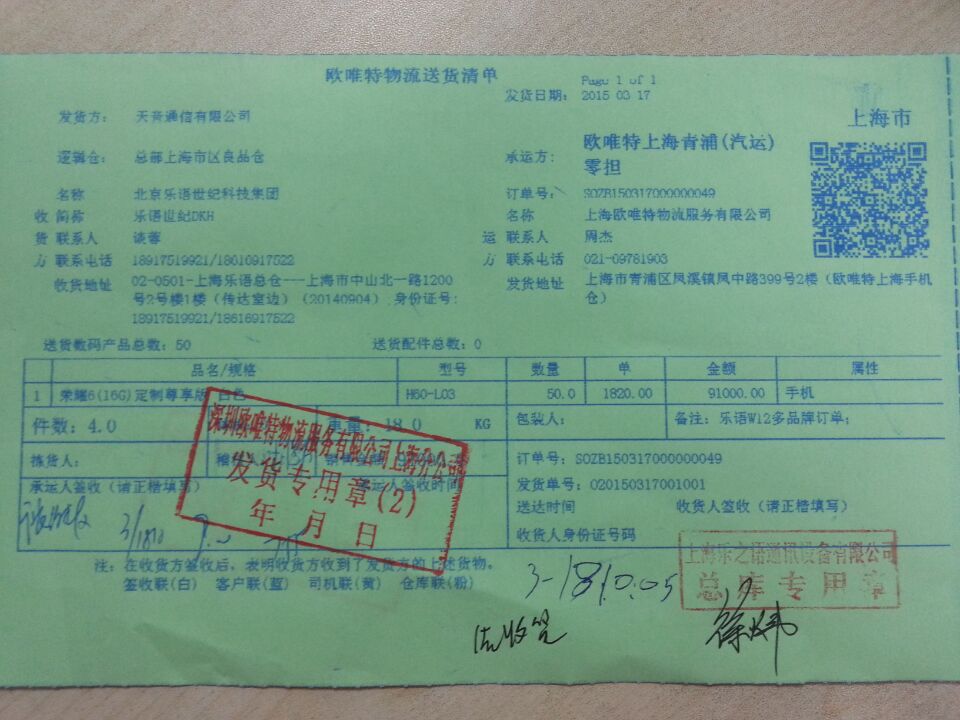 欧唯特物流送货清单
Page 1 of 1
发货日期: 2015 03 17
上海市
发货方: 天音通信有限公司
逻辑仓: 总部上海市区良品仓
承运方: 欧唯特上海青浦(汽运)
零担
名称 北京乐语世纪科技集团
订单号: SOZB150317000000049
收 简称 乐语世纪DKH
名称 上海欧唯特物流服务有限公司
货 联系人 谈蓉
运 联系人 周杰
方 联系电话 18917519921/18616917522
方 联系电话 021-09781903
收货地址 02-0501-上海乐语总仓---上海市中山北一路1200
号2号楼1楼（传达室边）(20140904)；身份证号:
18917519921/18616917522
发货地址 上海市青浦区凤溪镇凤中路399号2楼（欧唯特上海手机
仓）
送货数码产品总数: 50
送货配件总数: 0
品名/规格 型号 数量 单 金额 属性
1 荣耀6(16G)定制尊享版 白色 H60-L03 50.0 1820.00 91000.00 手机
件数: 4.0 重量: 18.0 KG
包装人:
备注: 乐语W12多品牌订单;
拣货人:
订单号: SOZB150317000000049
发货单号: 020150317001001
承运人签收（请正楷填写）
承运人签收时间
送达时间
收货人签收（请正楷填写）
收货人身份证号码
深圳欧唯特物流服务有限公司上海分公司
发货专用章(2)
年 月 日
上海乐之语通讯设备有限公司
总库专用章
注: 在收货方签收后, 表明收货方收到了发货方的上述货物。
签收联(白) 客户联(蓝) 司机联(黄) 仓库联(粉)
3-1810.05
徐炜